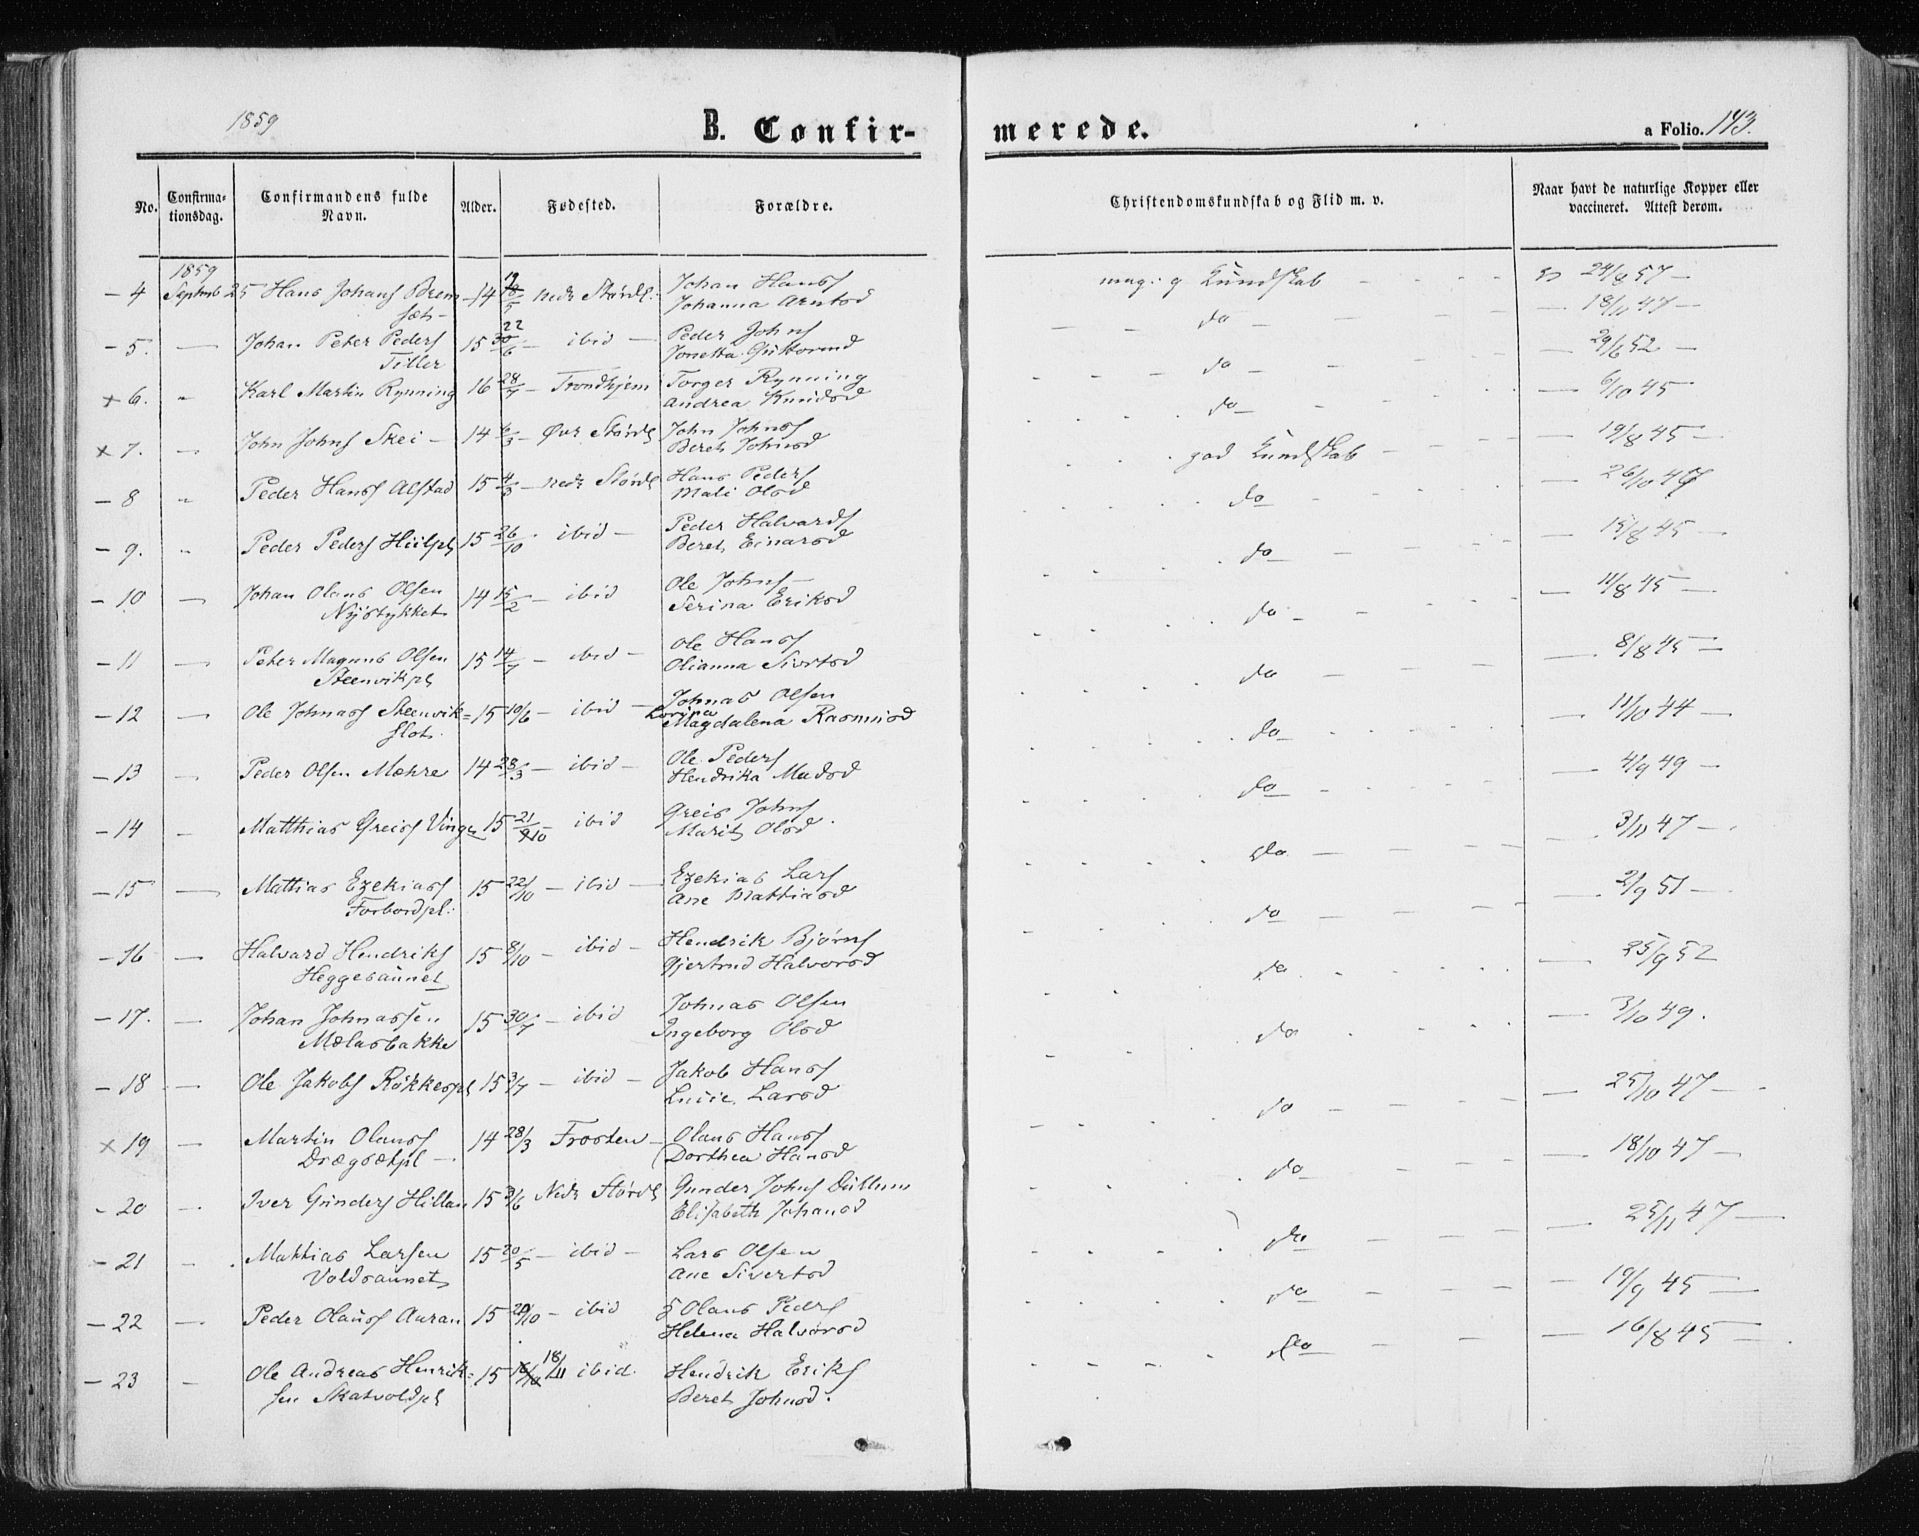 1859
B. Confirmerede.
a Folio. 143.
No.
Confirmationsdag.
Confirmandens fulde Navn.
Alder.
Fødested.
Forældre.
Christendomskundskab og Flid m. v.
Naar havt de naturlige Kopper eller vaccineret. Attest derom.
1859
4 Septemb 25 Hans Johans 14 Nedr Størd: Johan Hans Johanna Arntsd Kundskab 24/8 57
18/11 47
5. Johan Peter Peders Tiller 15 22/6 ibid Peder Johns Jonetta do 29/6 52
6. Karl Martin Rynning 16 28/7 Trondhjem Torger Rynning Andrea Knudsd do 6/10 45
7. John Johns Skei 14 6/3 Øvr Størdl John Johns Beret Johnsd do 19/8 45
8 Peder Hans Alstad 15 4/3 Nedr Størdl Hans Peders Mali Olsd god Kundskab
9. Peder Peders 15 26/10 ibid Peder Halvards Beret Einarsd do 15/8 45
10 Johan Olaus Olsen Nystykket 14 15/2 ibid Ole Johns Serina Eriksd do 11/8 45
11 Peter Magnus Olsen Steenvikpl 15 14/7 ibid Ole Hans Olianna Sivrtsd do 8/8 45
12 Ole Johnas Steenvik= 15 10/6 ibid Johnas Olsen Lorina Magdalena Rasmusd do 11/10 44
13 Peder Olsen Mæhre 14 28/3 ibid Ole Peders Hendrika do 4/9 49
14 Matthias Greis Vinge 15 21/10 ibid Greis Johns Marit Olsd do 3/11 47
15 Mattias Ezekias Forbordpl: 15 22/10 ibid Ezekias Lars Ane Mattiasd do 2/9 51
16 Halvard Hendriks Heggesaunet 15 8/10 ibid Hendrik Bjørns Gjertrud Halvorsd do 25/9 52
17. Johan Johnassen Mælasbakke 15 30/7 ibid Johnas Olsen Ingeborg Olsd do 3/10 49.
18 Ole Jakobs Røkkespl 15 3/7 ibid Jakob Hans Lucie Larsd do 25/10 47
19 Martin Olaus Drægsætpl 14 28/3 Frosten Olaus Hans Dorthea Hansd do 18/10 47
20 Iver Gunders Hillan 15 3/6 Nedr Størdl Gunder Johns Dullum Elisabeth Johansd do 25/11 47
21 Mattias Larsen Voldsaunet 15 20/5 ibid Lars Olsen Ane Sivertsd do 19/9 45
22 Peder Olaus Auran 15 ibid Olaus Peders Helena Halvorsd do 16/8 45
23 Ole Andreas Henrik= sen Skatvoldpl 15 18/11 ibid Hendrik Eriks Beret Johnsd. do